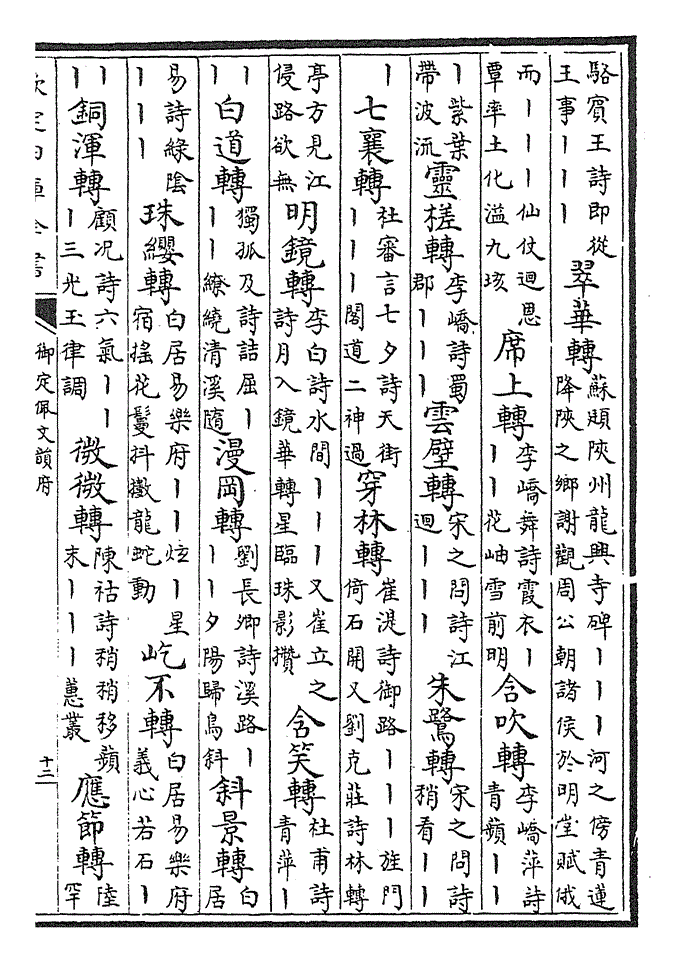 駱賓王詩即從
王事丨丨丨
翠華轉
蘇頲陜州龍興寺碑丨丨丨河之傍青蓮
降陜之鄉謝觀周公朝諸侯於明堂賦俄
而丨丨丨仙仗迴思
覃率土化溢九垓
席上轉
李嶠舞詩霞衣丨
丨丨花岫雪前明
含吹轉
李嶠萍詩
青蘋丨丨
丨紫葉
帶波流
靈槎轉
李嶠詩蜀
郡丨丨丨
雲壁轉
宋之問詩江
迴丨丨丨
朱鷺轉
宋之問詩
稍看丨丨
丨
七襄轉
杜審言七夕詩天街
丨丨丨閣道二神過
穿林轉
崔湜詩御路丨丨丨旌門
倚石開又劉克莊詩林轉
亭方見江
侵路欲無
明鏡轉
李白詩水間丨丨丨又崔立之
詩月入鏡華轉星臨珠影攢
含笑轉
杜甫詩
青萍丨
丨
丨
白道轉
獨孤及詩詰屈丨
丨丨繚繞清溪隨
漫岡轉
劉長卿詩溪路丨
丨丨夕陽歸鳥斜
斜景轉
白
居
易詩綠陰
丨丨丨
珠纓轉
白居易樂府丨丨炫丨星
宿搖花鬘抖擻龍蛇動
屹不轉
白居易樂府
義心若石丨
丨
丨
銅渾轉
顧况詩六氣丨丨
丨三光玉律調
微微轉
陳祜詩稍稍移蘋
末丨丨丨蕙叢
應節轉
陸
罕
欽定四庫全書
御定佩文韻府
十二